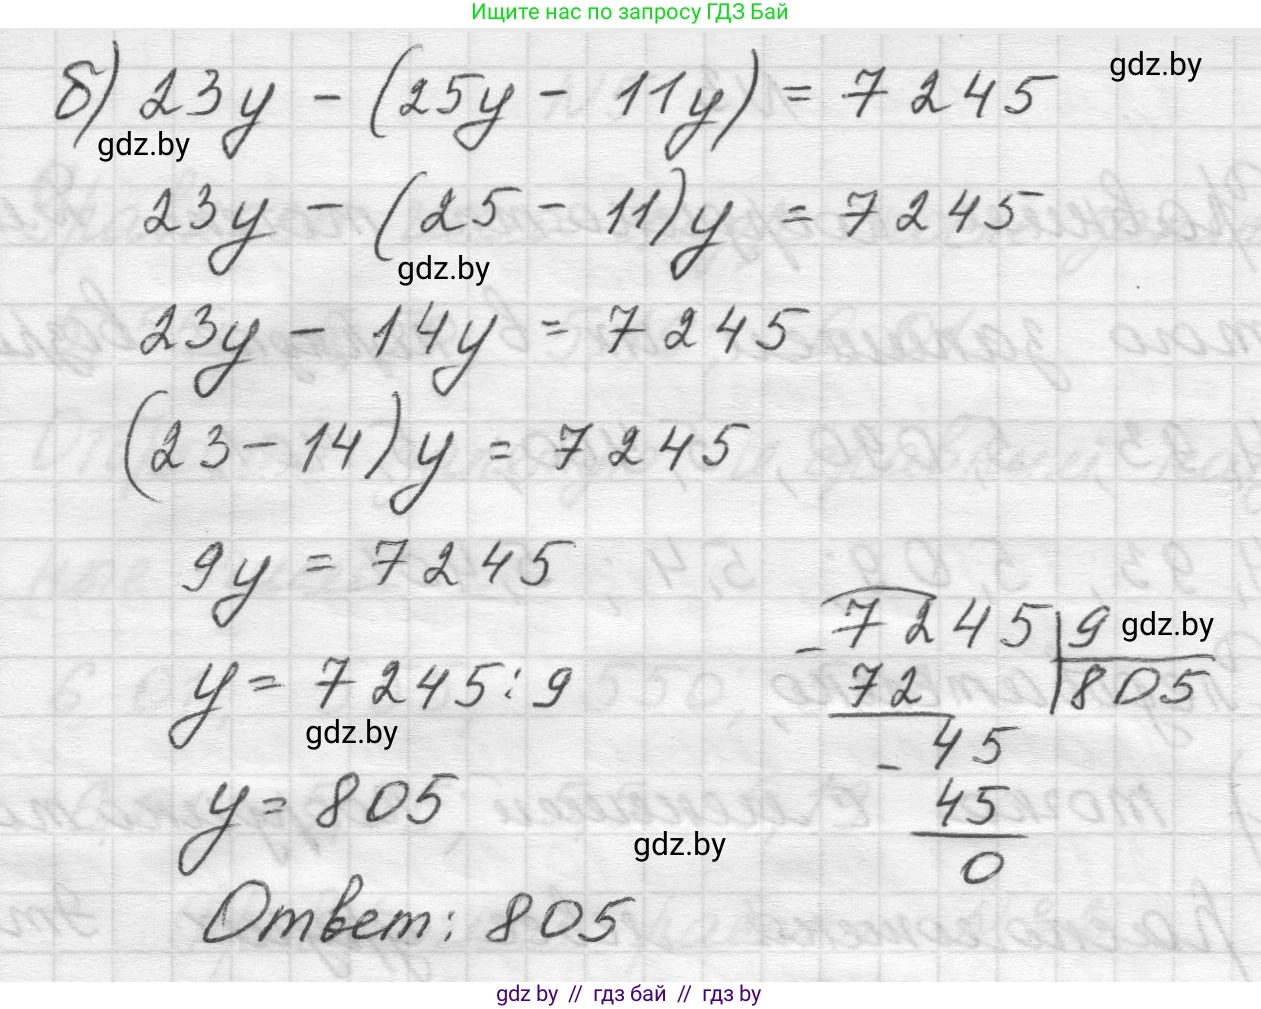 Ищите нас по запросу ГДЗ Бай
б) 23y - (25y - 11y) = 7245
gdz.by
gdz.by
23y - (25 - 11)y = 7245
gdz.by
23y - 14y = 7245
(23 - 14)y = 7245
9y = 7245
y = 7245 : 9
gdz.by
y = 805
Ответ: 805
7245 | 9
gdz.by
- 72 | 805
- 45
45
0
gdz.by
gdz by // гдз бай // гдз by